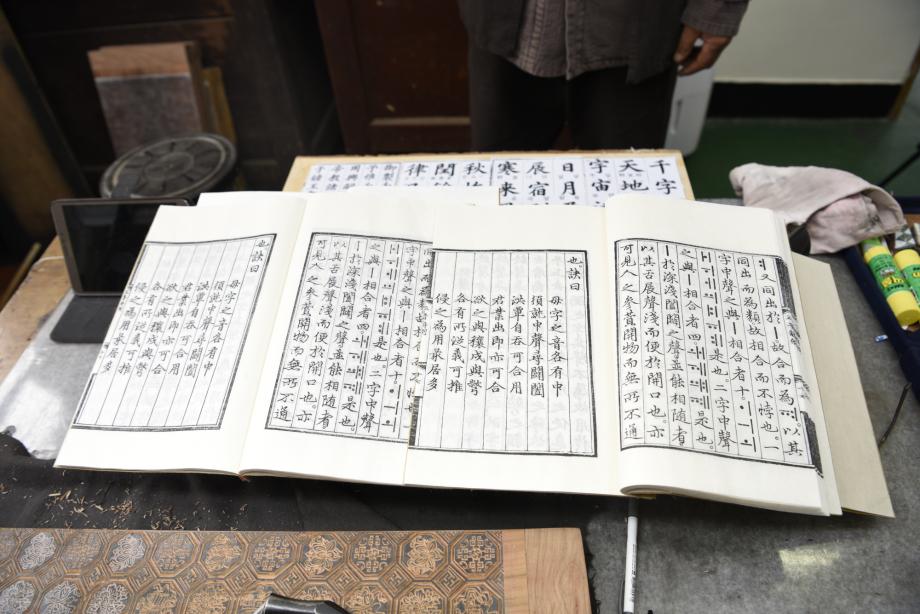 千字
天地
宇宙
日月
辰宿
寒來
秋
閏
律
又同出於ㅣ故合而為ㆊ。以其
同出而為類故相合而不悖也。一
字中聲之與ㅣ相合者十。ㆎㅢㅚ
ㅐㅟㅔㆉㅒㆌㅖ是也。二字中聲
之與ㅣ相合者四ㅙㅞㆈㆋ是也。
ㅣ於深淺闔闢之聲並能相隨者
以其舌展聲淺而便於開口也。亦
可見人之參贊開物而無所不通
也訣曰
母字之音各有中
須就中聲尋闢闔
洪覃自吞可合用
君業出即亦可合
欲之與穰戌與彆
各有所從義可推
侵之為用最居多
同出而為類故相
字中聲之與ㅣ相合者十
ㅐㅟㅔㆉㅒㆌㅖ是也。二字中聲
之與ㅣ相合者四ㅙㅞㆈㆋ是也
ㅣ於深淺闔闢之聲並能相隨者
以其舌展聲淺而便於開口也。亦
可見人之參贊開物而無所不通
也訣曰
母字之音各有中
須就中聲尋闢闔
洪覃自吞可合用
君業出即亦可合
欲之與穰戌與彆
各有所從義可推
侵之為用最居多